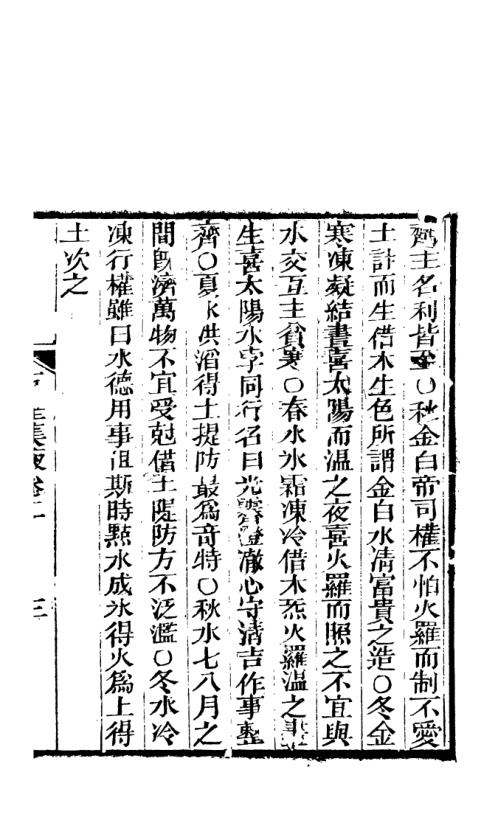 主名利皆全○秋金白帝司權不怕火羅而制不愛
土計而生借木生色所謂金白水清富貴之造○冬金
寒凍凝結晝喜太陽而溫之夜喜火羅而照之不宜與
水交互主貧寒○春水氷霜凍冷借木炁火羅溫之
生喜太陽水孛同行名曰光澄澈心守清吉作事整
齊○夏水洪滔得土提防最爲奇特○秋水七八月之
間既濟萬物不宜受尅借土隄防方不泛濫○冬水冷
凍行權雖曰水德用事但斯時點水成氷得火爲上得
土次之
集腋卷二
三